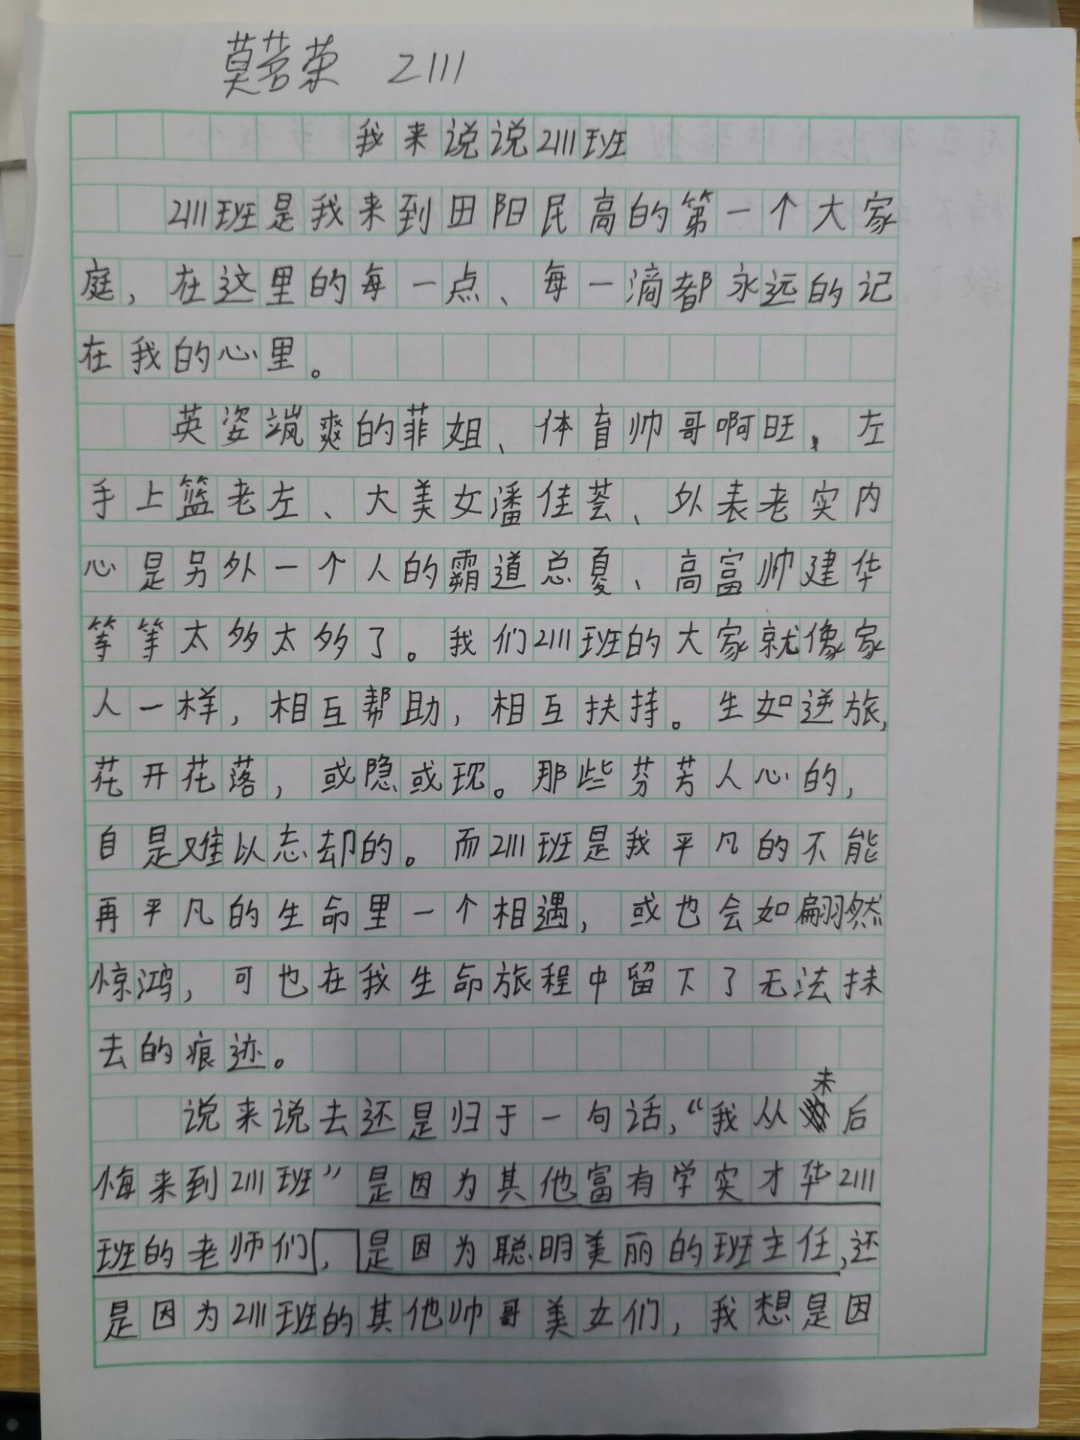 莫茗荣 2111
我来说说2111班
2111班是我来到田阳民高的第一个大家
庭，在这里的每一点、每一滴都永远的记
在我的心里。
英姿飒爽的菲姐、体育帅哥啊旺，左
手上篮老左、大美女潘佳荟、外表老实内
心是另外一个人的霸道总夏、高富帅建华
等等太多太多了。我们2111班的大家就像家
人一样，相互帮助，相互扶持。生如逆旅，
花开花落，或隐或现。那些芬芳人心的，
自是难以忘却的。而2111班是我平凡的不能
再平凡的生命里一个相遇，或也会如翩然
惊鸿，可也在我生命旅程中留下了无法抹
去的痕迹。
说来说去还是归于一句话，“我从未后
悔来到2111班”是因为其他富有学实才华2111
班的老师们，是因为聪明美丽的班主任，还
是因为2111班的其他帅哥美女们，我想是因